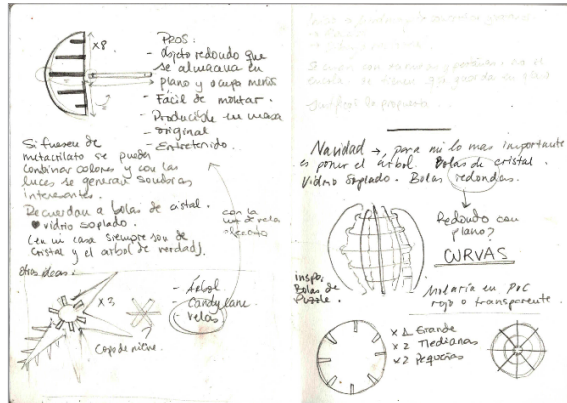 PROS:
x8
- Objeto redondo que
se almacena en
plano y ocupa menos
- Fácil de montar.
- Producible en masa
- original
- Entretenido.
Si fuesen de
metacrilato se pueden
combinar colores y con las
luces se generan sombras
interesantes.
Recuerdan a bolas de cristal.
vidrio soplado.
(en mi casa siempre son de
cristal y el arbol de verdad).
con la
luz de velas
otras ideas:
x3
Copo de nieve.
- Árbol
- Candy lane
- velas
Navidad → para mi lo mas importante
es poner el árbol. Bolas de cristal.
Vidrio Soplado. Bolas redondas.
Redondo con
plano?
CURVAS
inspo:
Bolas de
Puzzle.
Molaría en PVC
rojo o transparente.
x 1 Grande
x 2 Medianas
x 2 Pequeñas